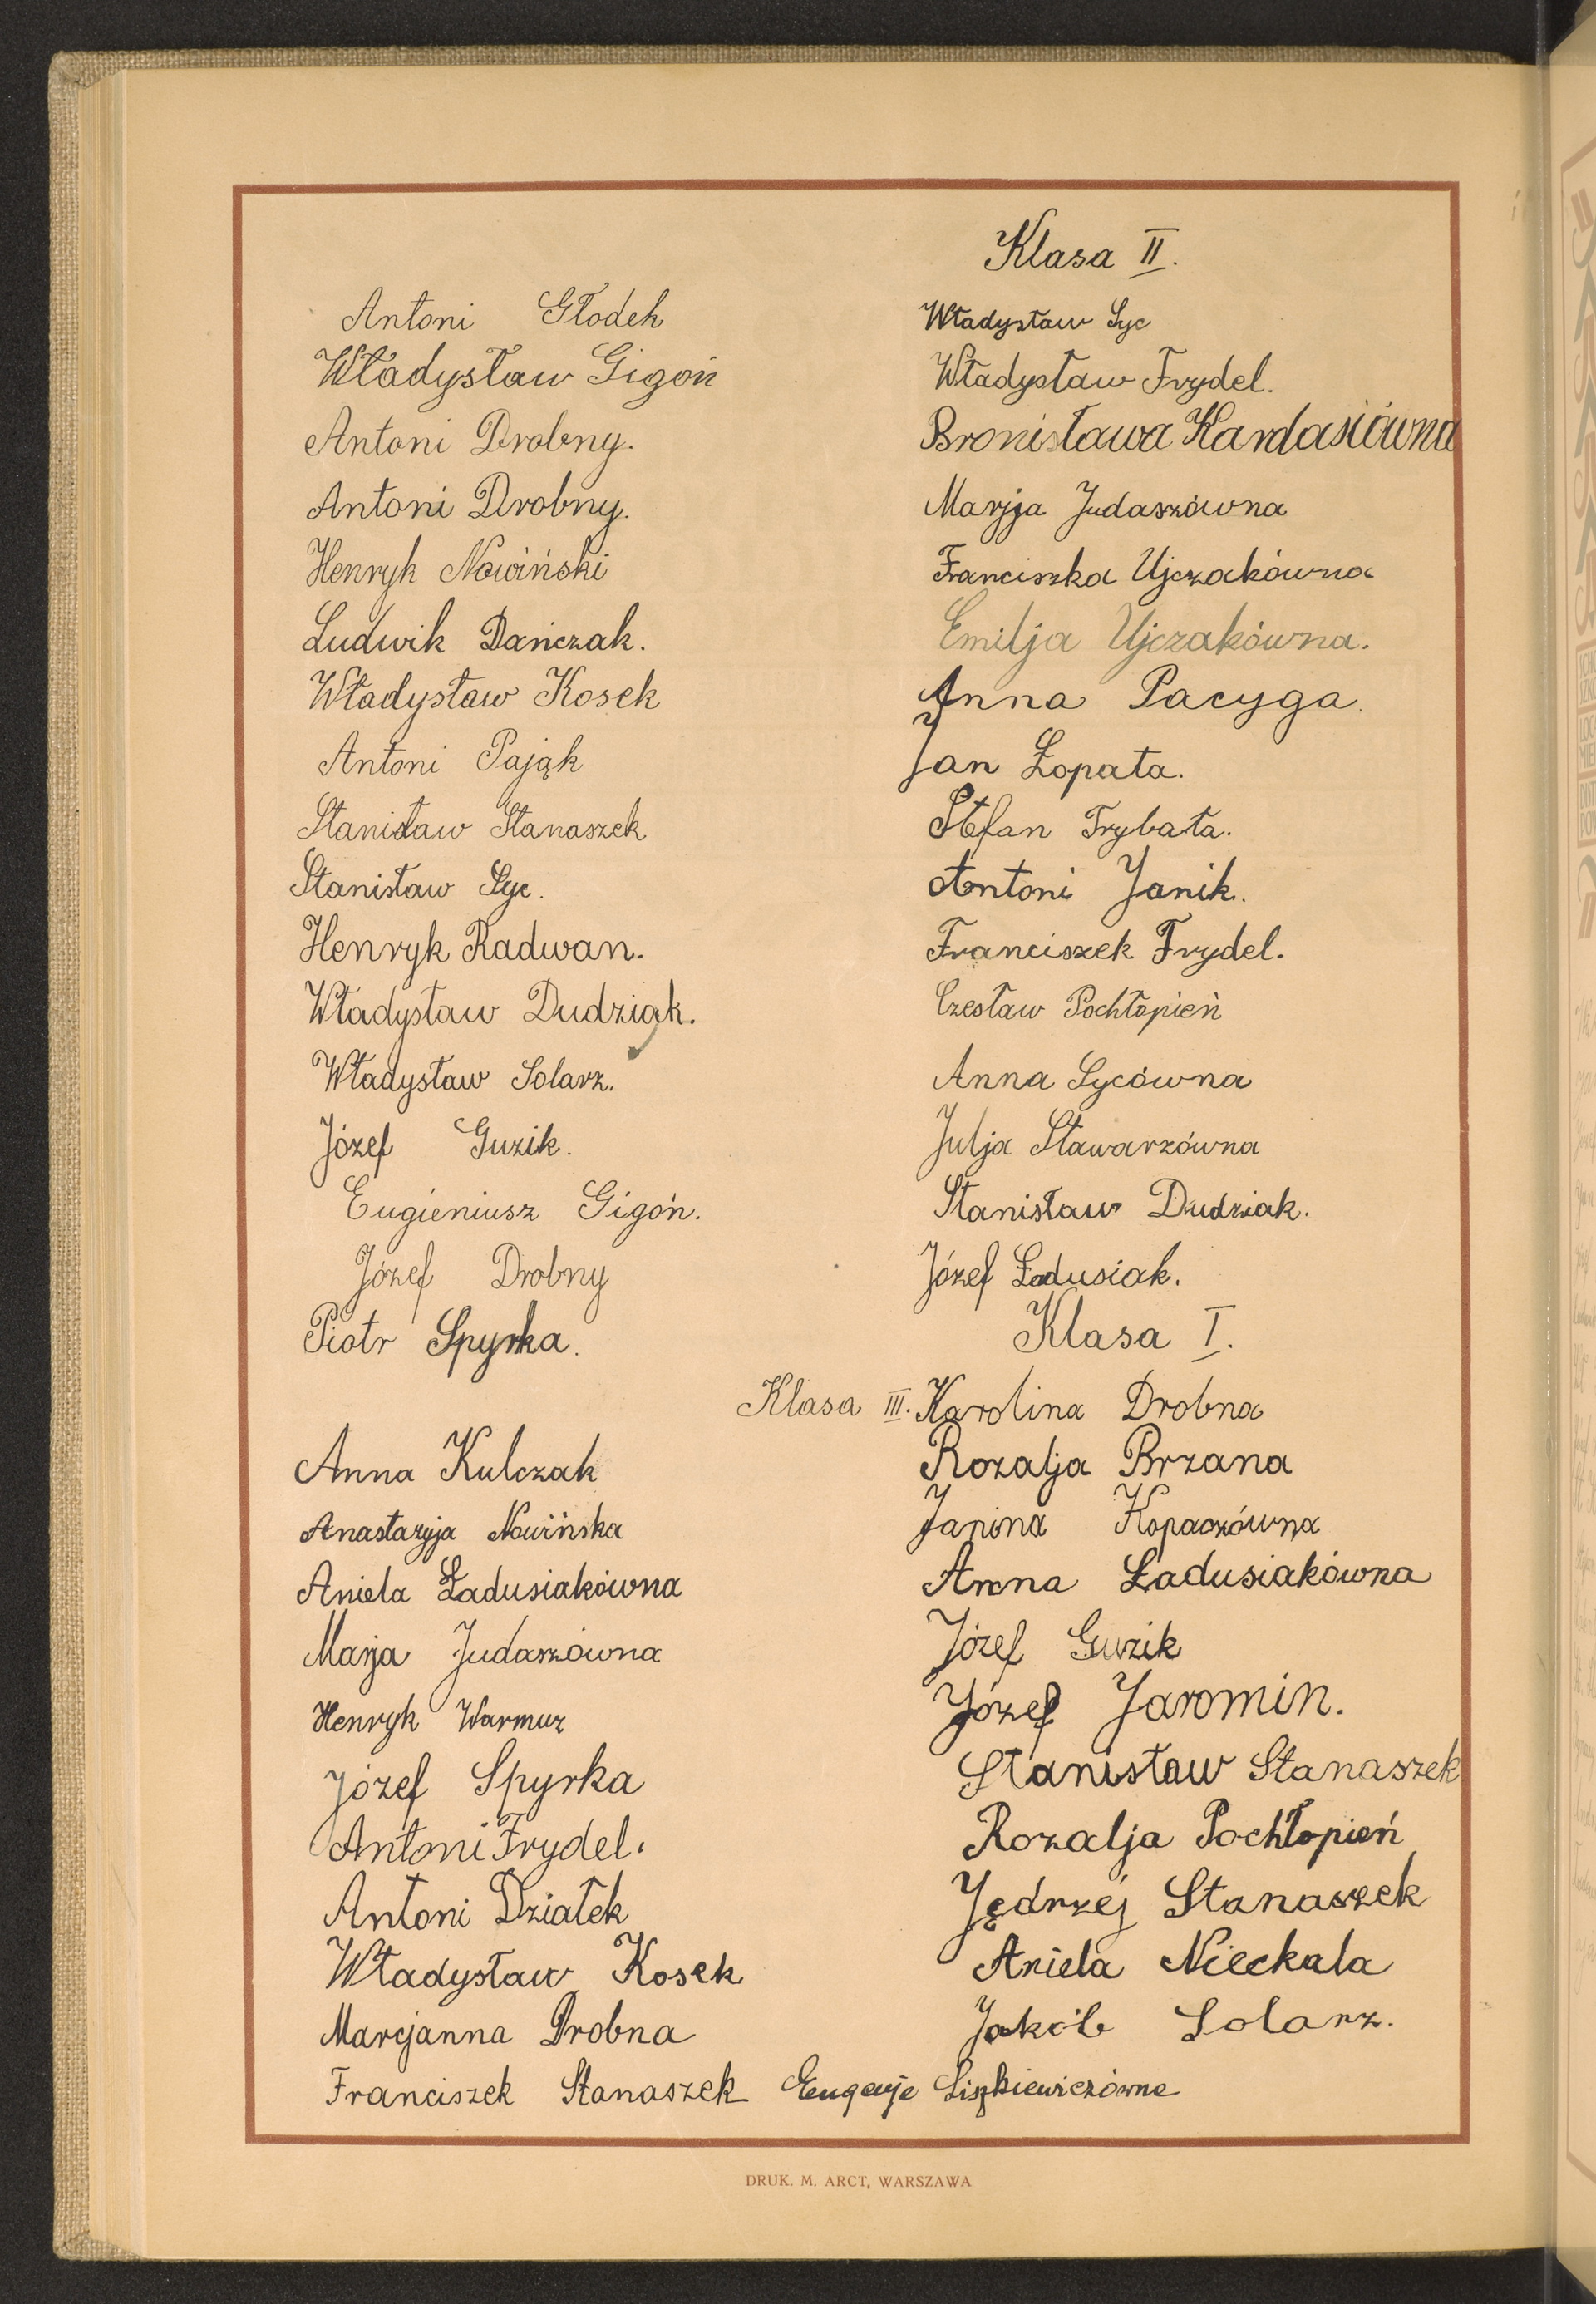 Antoni Głodek
Władysław Gigoń
Antoni Drobny.
Antoni Drobny.
Henryk Nowiński
Ludwik Dańczak.
Władysław Kosek
Antoni Pająk
Stanisław Stanaszek
Stanisław Syc.
Henryk Radwan.
Władysław Dudziak.
Władysław Solarz.
Józef Guzik.
Eugieniusz Gigoń.
Józef Drobny
Piotr Spyrka.
Klasa III.
Anna Kulczak
Anastazyja Nowińska
Aniela Ładusiakówna
Marja Judaszówna
Henryk Warmuz
Józef Spyrka
Antoni Frydel.
Antoni Działek
Władysław Kosek
Marcjanna Drobna
Franciszek Stanaszek
Klasa II.
Władysław Syc
Władysław Frydel.
Bronisława Kardasiówna
Marjja Judaszówna
Franciszka Ujczakówna
Emilja Ujczakówna.
Anna Pacyga.
Jan Łopata.
Stefan Trybała.
Antoni Janik.
Franciszek Frydel.
Czesław Pochłopień
Anna Sycówna
Julja Stawarzówna
Stanisław Dudziak.
Józef Ładusiak.
Klasa I.
Karolina Drobna
Rozalja Brzana
Janina Kopaczówna
Anna Ładusiakówna
Józef Guzik
Józef Jaromin.
Stanisław Stanaszek
Rozalja Pochłopień
Jędrzej Stanaszek
Aniela Nieckala
Jakób Solarz.
Eugenje Liszkiewiczówne
DRUK. M. ARCT, WARSZAWA